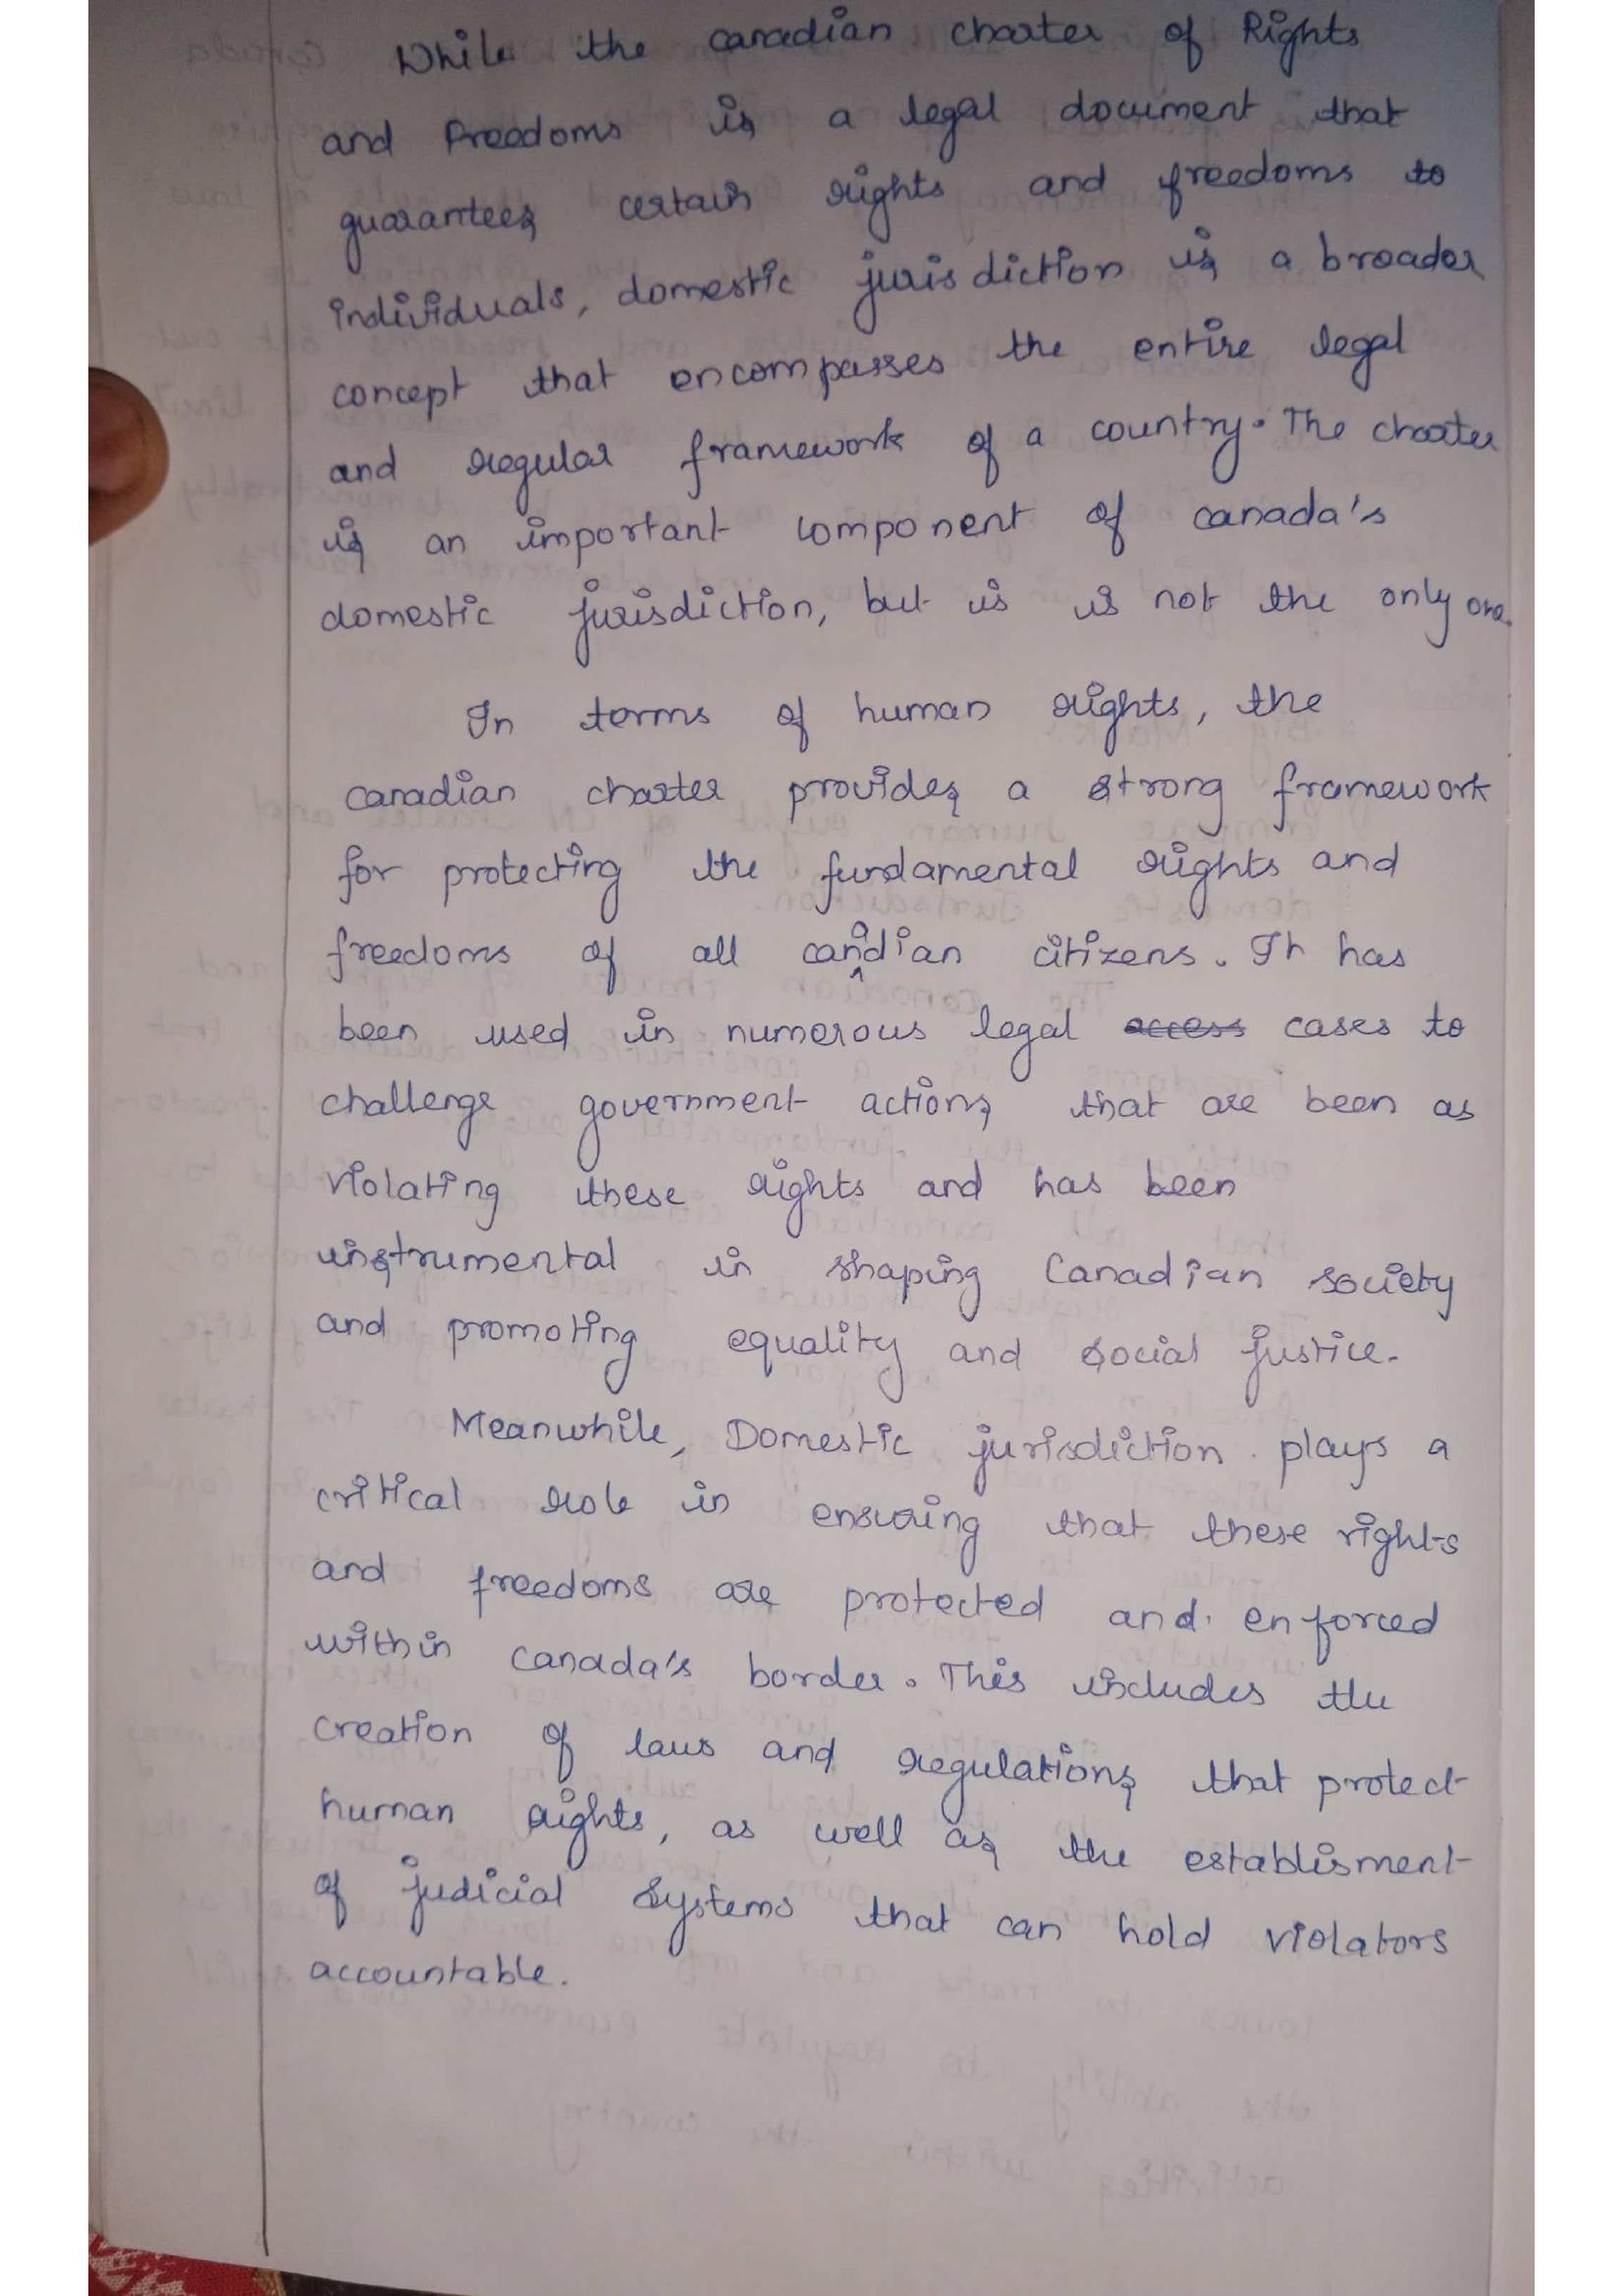 While the canadian charter of Rights
and Freedoms is a legal document that
guarantees certain rights and freedoms to
individuals, domestic jurisdiction is a broader
concept that encompasses the entire legal
and regular framework of a country. The charter
is an important component of canada's
domestic jurisdiction, but is is not the only one.
In terms of human rights, the
canadian charter provides a strong framework
for protecting the fundamental rights and
freedoms of all canadian citizens. It has
been used in numerous legal access cases to
challenge government actions that are been as
violating these rights and has been
instrumental in shaping Canadian society
and promoting equality and social justice.
Meanwhile, Domestic jurisdiction plays a
critical role in ensuring that these rights
and freedoms are protected and enforced
within canada's border. This includes the
creation of laws and regulations that protect
human rights, as well as the establisment
of judicial systems that can hold violators
accountable.